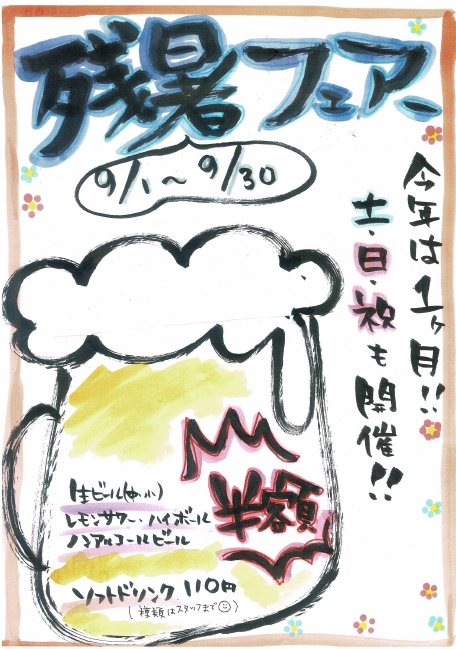 残暑フェアー
9/1〜9/30
今年は1ヶ月!!
土・日・祝も開催!!
半額
生ビール(中・小)
レモンサワー・ハイボール
ノンアルコールビール
ソフトドリンク 110円
(種類はスタッフまで☺)